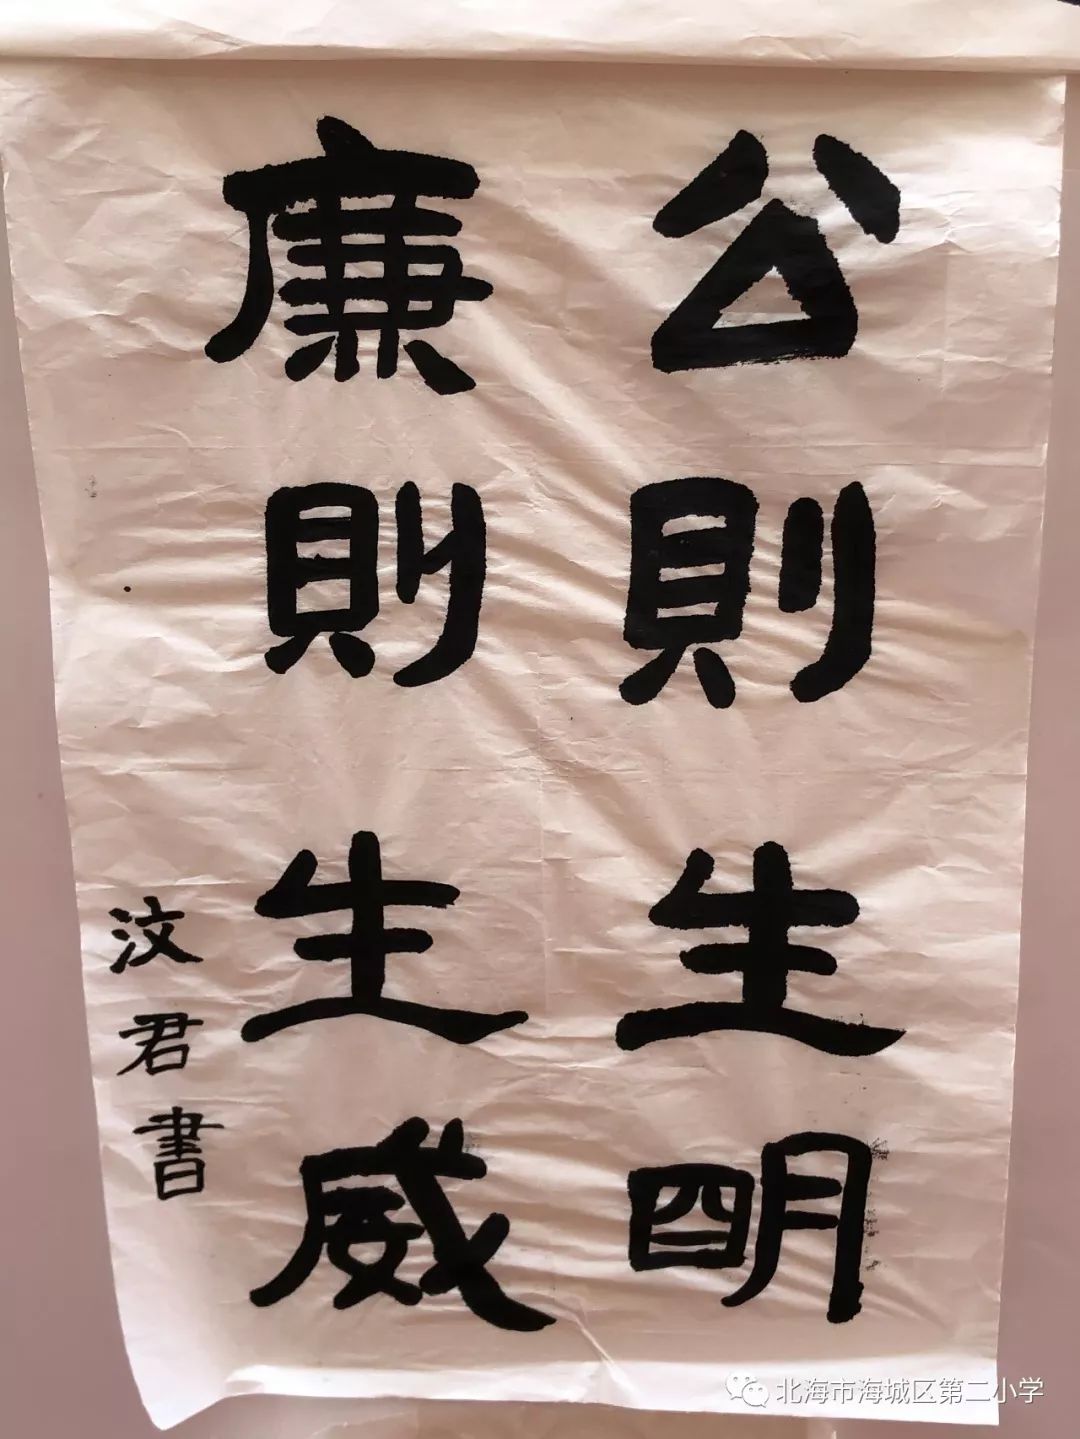 公則生明
廉則生威
汶君書
北海市海城区第二小学